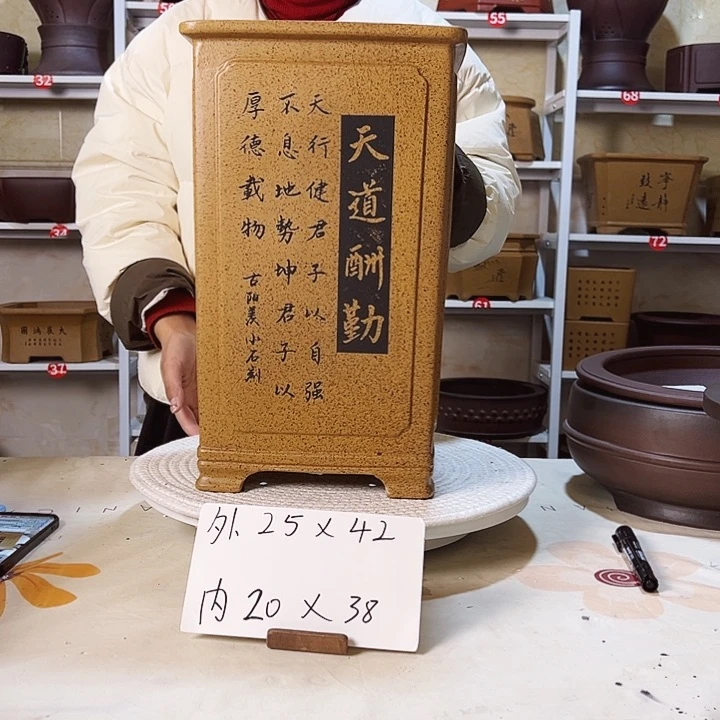 天道酬勤
天行健君子以自强
不息地势坤君子以
厚德载物
古阳羡小石制
外 25 x 42
内 20 x 38
32
55
68
72
61
37
大展鸿图
宁静致远